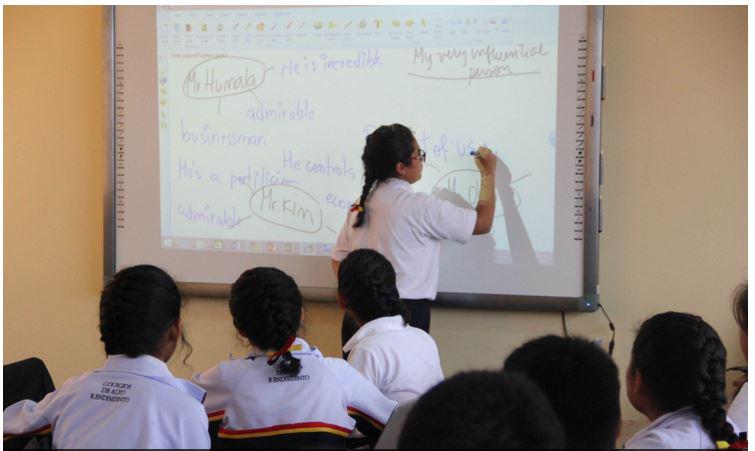 My very influential
person
He is incredible
Mr. Humala
admirable
businessman
of US
He controls
He's a
Mr. Kim
admirable
COLEGIOS
DE ALTO
RENDIMIENTO
RENDIMIENTO